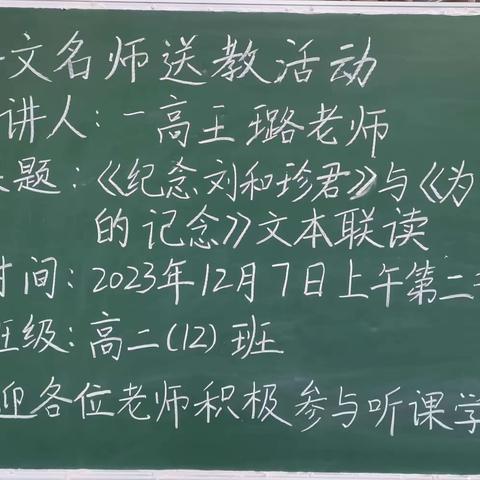 文名师送教活动
讲人：一高王璐老师
题：《纪念刘和珍君》与《为
的记念》文本联读
时间：2023年12月7日上午第二
班级：高二（12）班
迎各位老师积极参与听课学